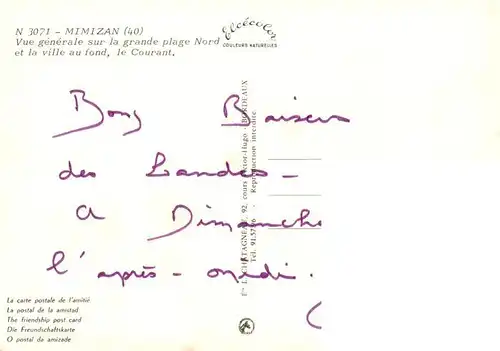 N 3071 - MIMIZAN (40)
Vue générale sur la grande plage Nord
et la ville au fond, le Courant.
Elcécolor
COULEURS NATURELLES
Bons Baisers
des Landes -
a Dimanche
l'après-midi.
Ets LA CHATAIGNERAIE, 92, cours Victor-Hugo - BORDEAUX
Reproduction interdite
La carte postale de l'amitié
La postal de la amistad
The friendship post card
Die Freundschaftskarte
O postal da amizade